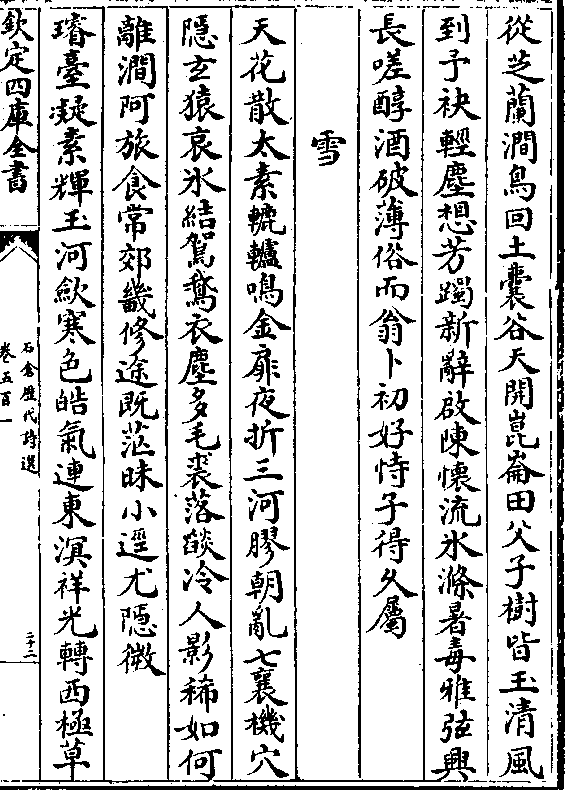 從芝蘭澗鳥回土囊谷天開崑崙田父子樹皆玉清風
到予袂輕塵想芳躅新辭啟陳懷流氷滌暑毒雅弦興
長嗟醇酒破薄俗而翁卜初好恃子得久屬
雪
天花散太素轆轤鳴金扉夜折三河膠朝亂七襄機穴
隱玄猿哀氷結駕鵞衣塵多毛裘落燄冷人影稀如何
離澗阿旅食常郊畿修途既茫昧小逕尤隱微
璿臺凝素輝玉河歛寒色皓氣連東溟祥光轉西極草
欽定四庫全書
石倉歷代詩選
卷五百一
二十二